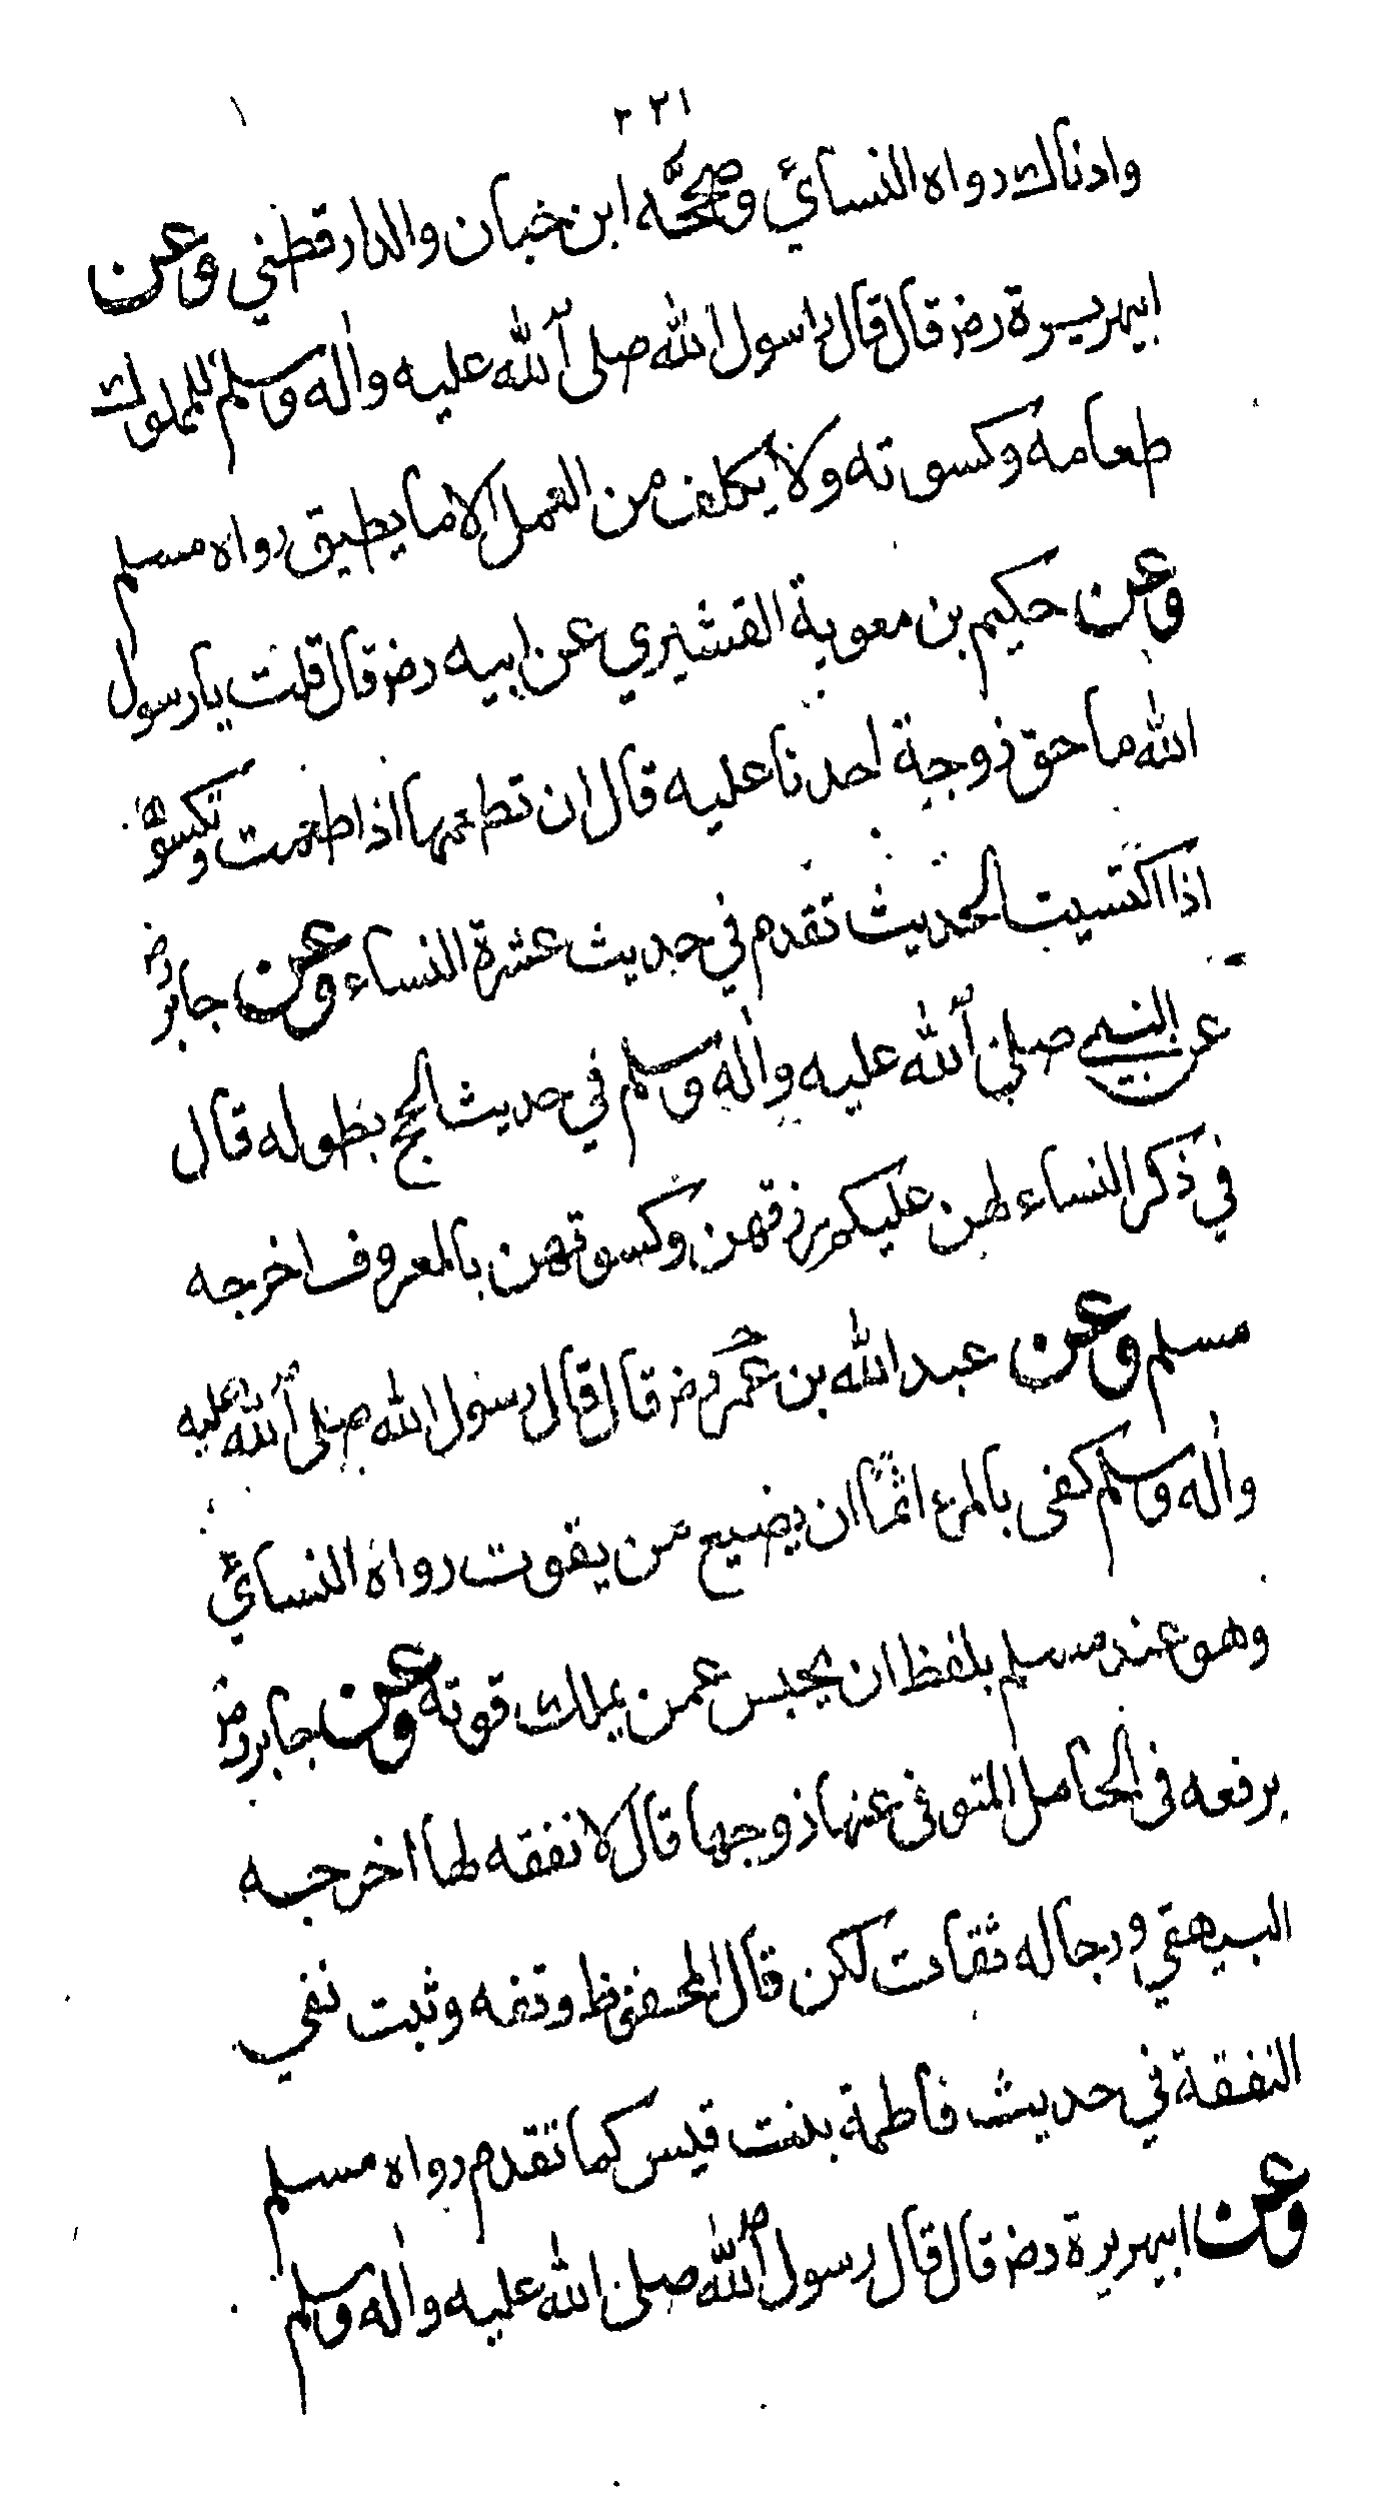 ٢٢١
وادناك رواه النسائي وصححه ابن حبان والدارقطني وعن
ابيهريرة رض قال قال رسول الله صلى الله عليه واله وسلم للمملوك
طعامه وكسوته ولا يكلف من العمل الا ما يطيق رواه مسلم
وعن حكيم بن معوية القشيري عن ابيه رض قال قلت يا رسول
الله ما حق زوجة احدنا عليه قال ان تطعمها اذا طعمت وتكسوها
اذا اكتسيت الحديث تقدم في حديث عشرة النساء وعن جابر رض
عن النبي صلى الله عليه واله وسلم في حديث الحج بطوله قال
في ذكر النساء لهن عليكم رزقهن وكسوتهن بالمعروف اخرجه
مسلم وعن عبد الله بن عمرو رض قال قال رسول الله صلى الله عليه
واله وسلم كفى بالمرء اثمًا ان يضيع من يقوت رواه النسائي
وهو عند مسلم بلفظ ان يحبس عمن يملك قوته وعن جابر رض
يرفعه في الحامل المتوفى عنها زوجها قال لا نفقه لها اخرجه
البيهقي ورجاله ثقات لكن قال المحفوظ وقفه وثبت نفي
النفقة في حديث فاطمة بنت قيس كما تقدم رواه مسلم
وعن ابيهريرة رض قال قال رسول الله صلى الله عليه واله وسلم